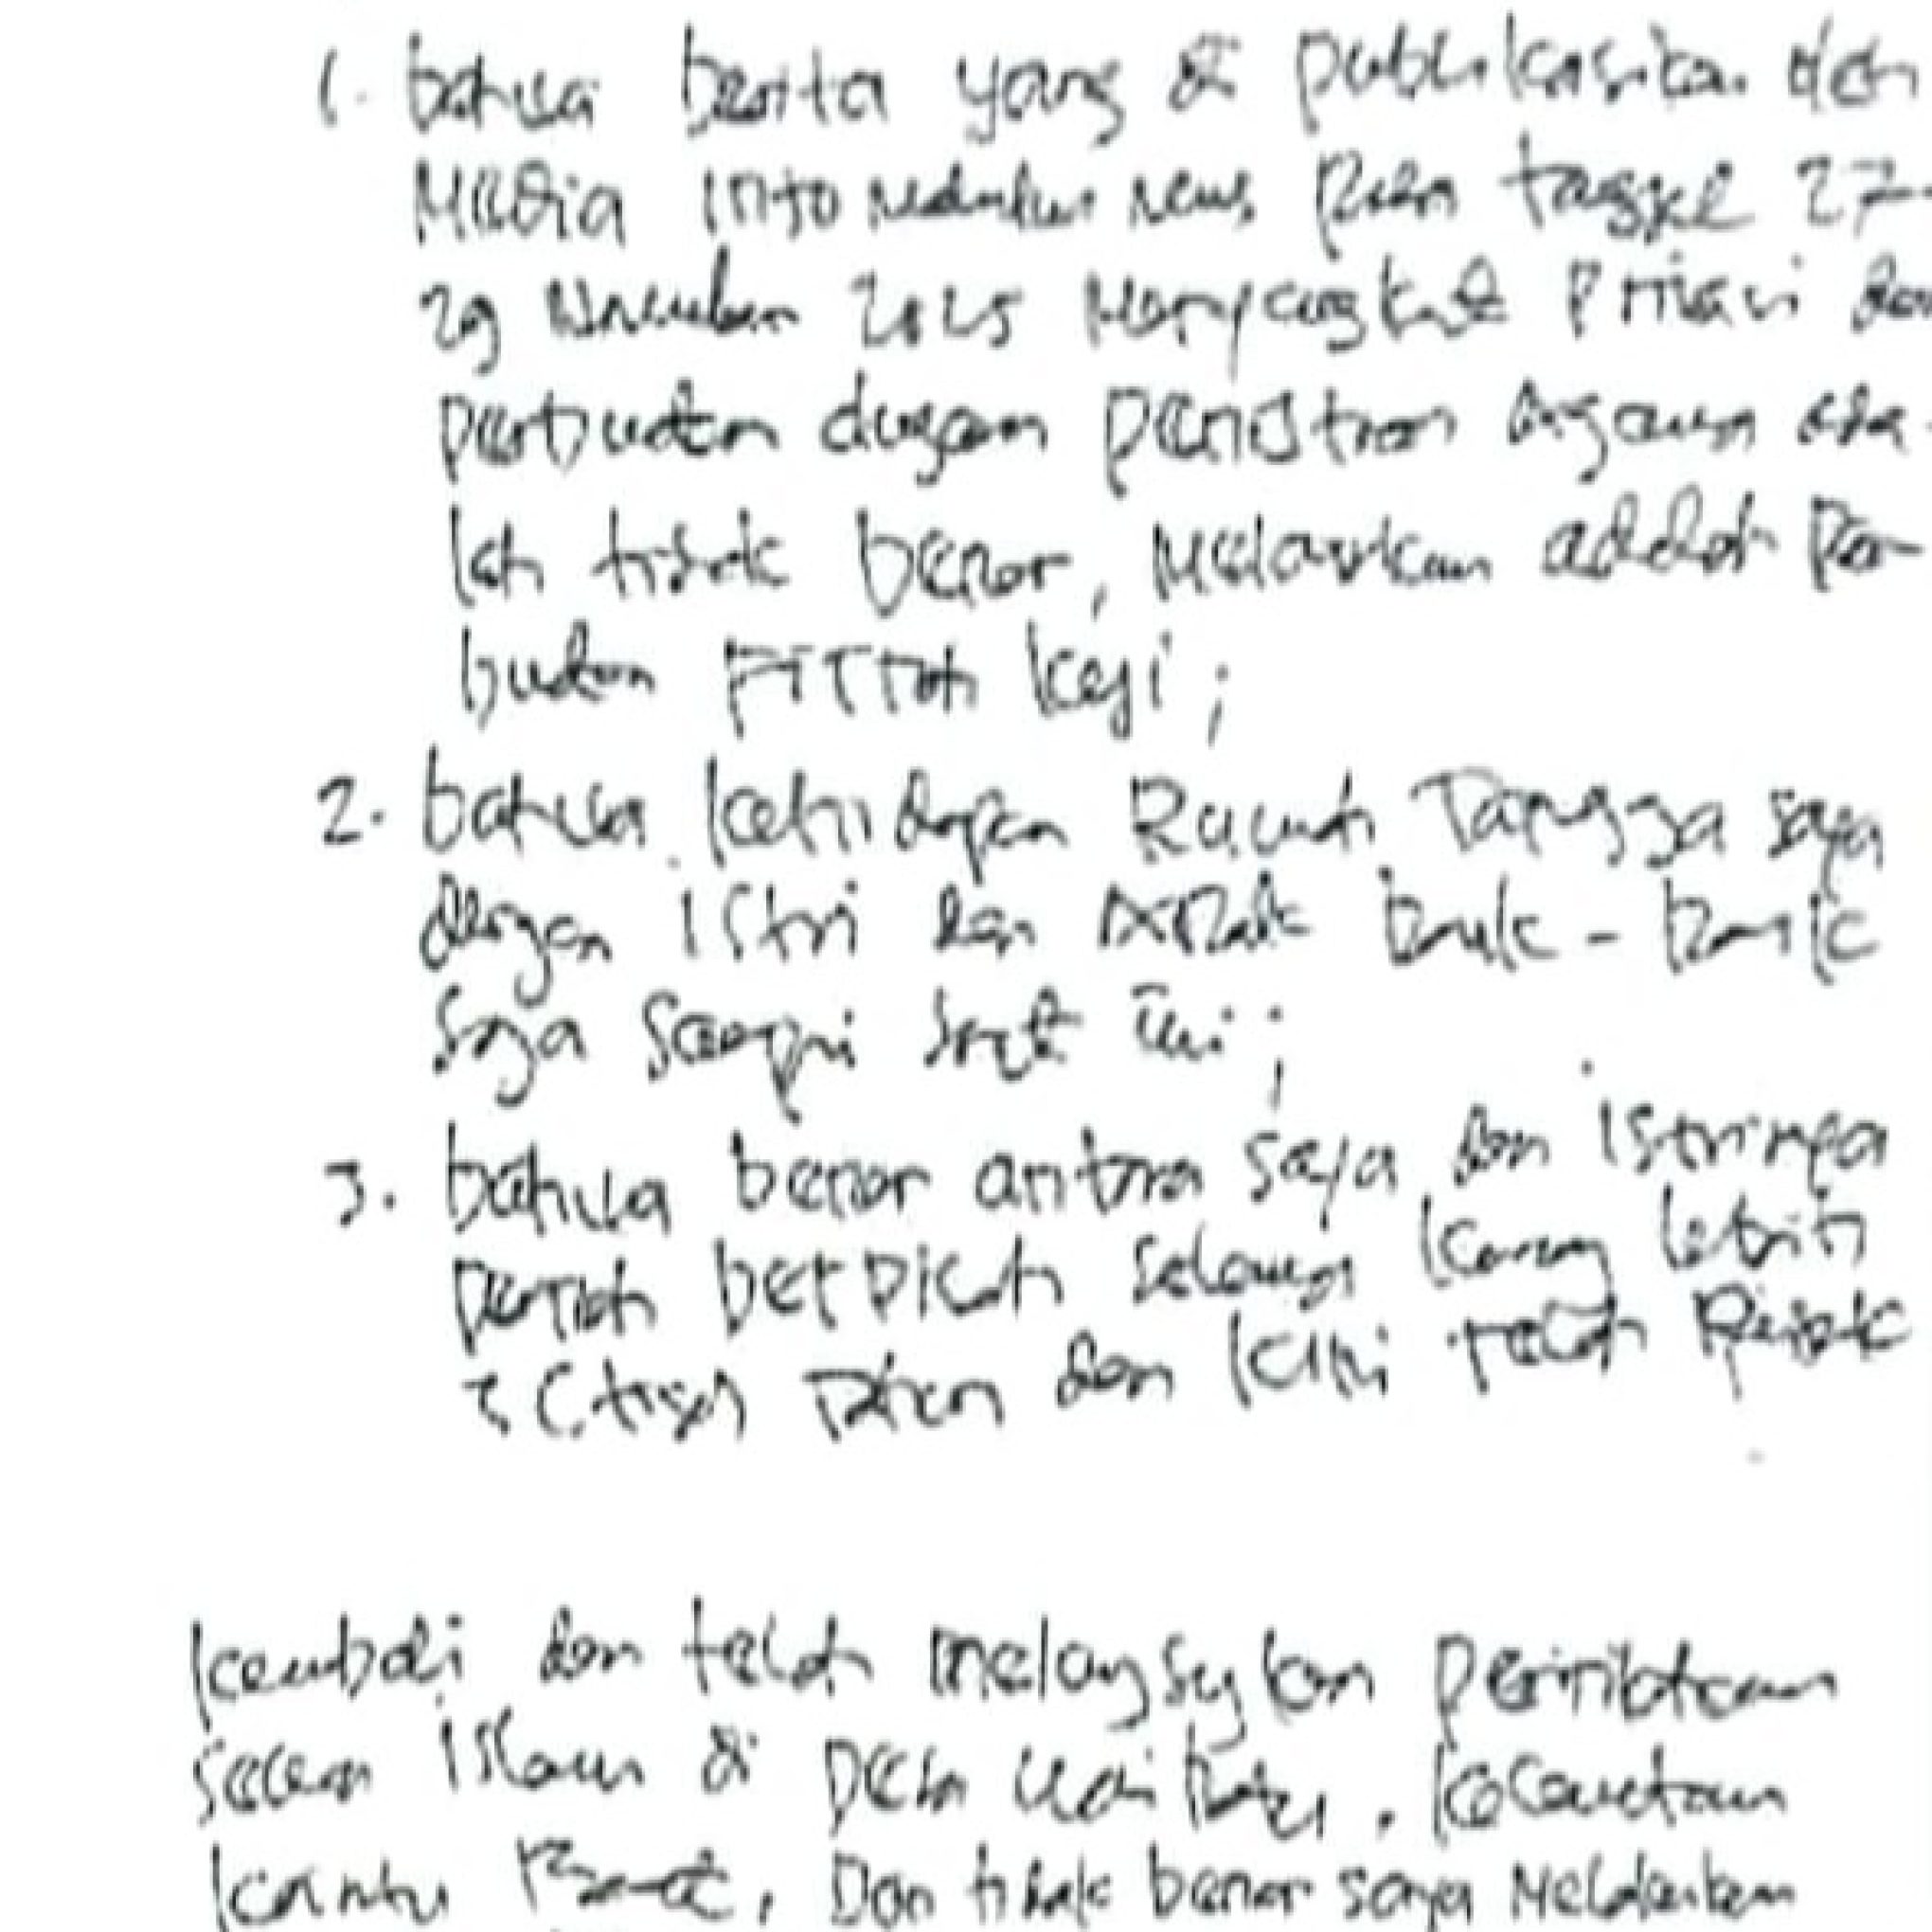 1. bahwa berita yang di publikasikan oleh
Media Info News pada tanggal 27-
29 November 2025 Menyangkut Privasi dan
perbuatan dugaan penistaan Agama ada-
lah tidak benar, Melainkan adalah Per-
buatan FITTah keji;
2. bahwa kehidupan Rumah Tangga saya
dengan istri dan Anak baik-baik
saja sampai saat ini;
3. bahwa benar antara saya dan istrinya
pernah berpisah selama kurang lebih
3 (tiga) Tahun dan kini telah Rujuk
kembali dan telah melangsungkan pernikahan
secara Islam di Desa Kecamatan
Barat, Dan tidak benar saya Melakukan